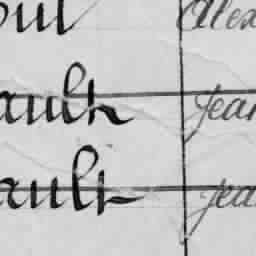 oul Alex
ault Jean
ault Jea